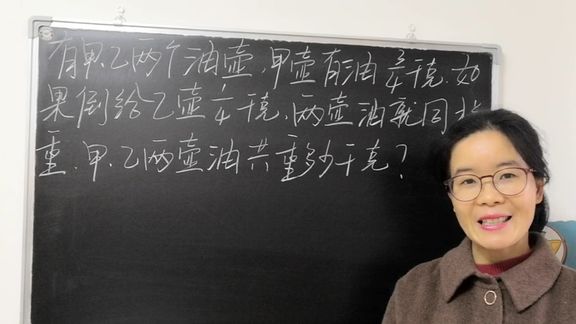 有甲.乙两个油壶,甲壶有油3/4千克.如
果倒给乙壶1/4千克.两壶油就同样
重.甲.乙两壶油共重多少千克?